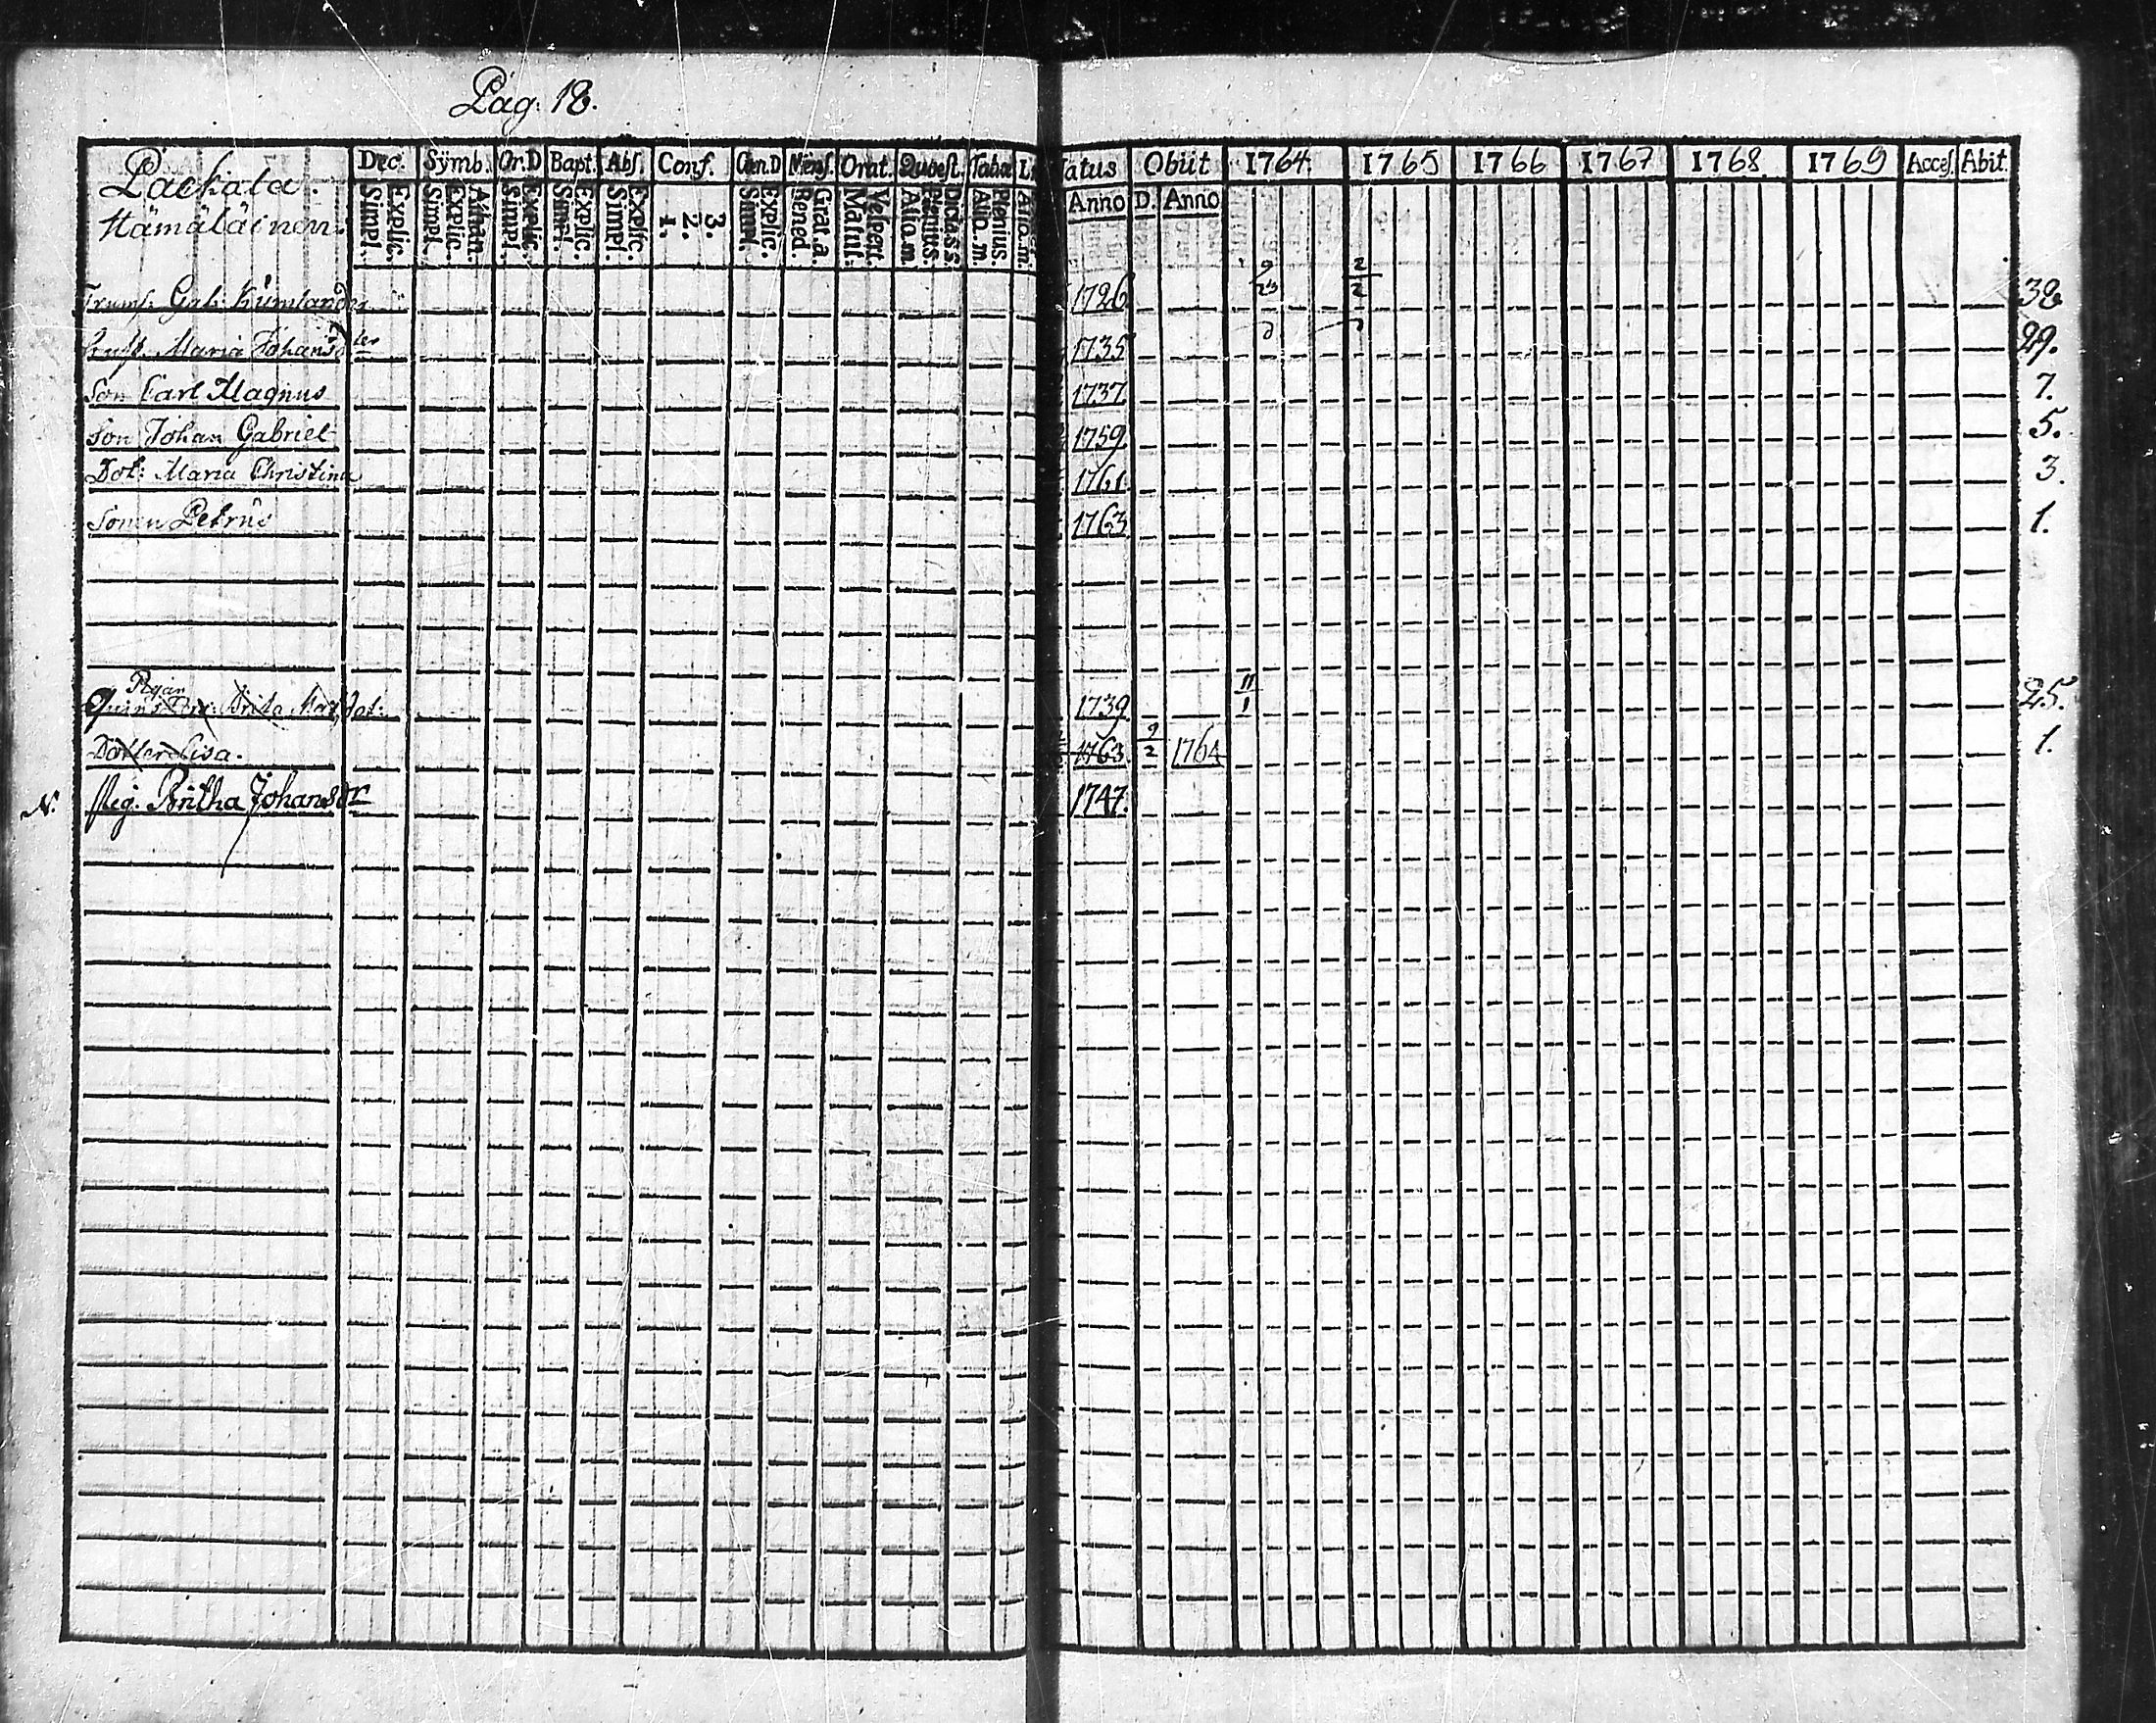 Pag. 18.
Packala.
Hämäläinen.
Dec. Symb. Or.D Bapt. Abs. Conf. Cœn.D Mens. Orat. Quæst. Tabæ
Simpl. Explic. Simpl. Explic. Athan. Simpl. Explic. Simpl. Explic. Simpl. Explic. 1. 2. 3. Simpl. Explic. Bened. Grat.a. Matut. Vesper. Alio.m. Plenius. Dict.a s.s. Alio.m. Plenius Alio.m.
Natus Obiit 1764. 1765 1766 1767 1768 1769 Acces. Abit.
Anno D. Anno
Trumsl. Gab. Kumlander 1726 9/23 2/2 38
Hust. Maria Johansdter 1735 29.
Son Carl Magnus 1737 7.
Son Johan Gabriel 1759 5.
Dot: Maria Christina 1761 3.
Sonen Petrus 1763 1.
Pigan
Brita Mat. dot: 1739 11/1 25.
Dotter Lisa. 1763 9/2 1764 1.
N. Pig. Britha Johansdr 1747.